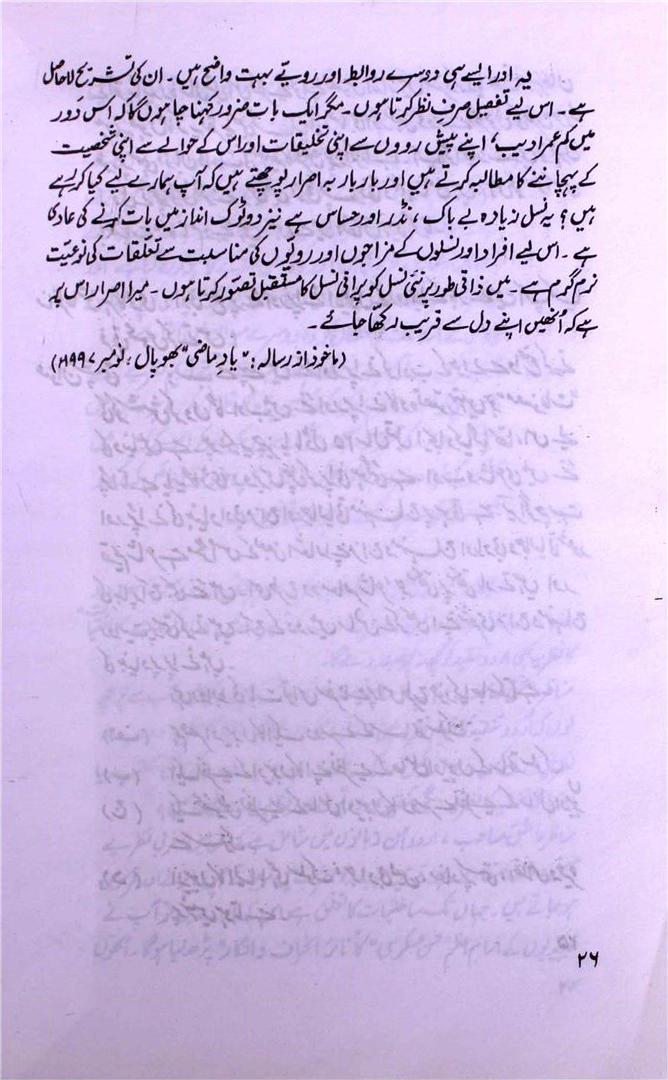 یہ اور ایسے ہی دوسرے روابط اور رویّے بہت واضح ہیں۔ ان کی تشریح لاحاصل
ہے۔ اس لیے تفصیل صرفِ نظر کرتا ہوں۔ مگر ایک بات ضرور کہنا چاہوں گا کہ اس دَور
میں کم عمر ادیب، اپنے پیش رووں سے اپنی تخلیقات اور اس کے حوالے سے اپنی شخصیت
کے پہچاننے کا مطالبہ کرتے ہیں اور بار بار بہ اصرار پوچھتے ہیں کہ آپ ہمارے لیے کیا کر رہے
ہیں؟ یہ نسل زیادہ بے باک، نڈر اور حساس ہے نیز دوٹوک انداز میں بات کہنے کی عادی
ہے۔ اس لیے افراد اور نسلوں کے مزاجوں اور رویّوں کی مناسبت سے تعلّقات کی نوعیّت
نرم گرم ہے۔ میں ذاتی طور پر نئی نسل کو پرانی نسل کا مستقبل تصوّر کرتا ہوں۔ میرا اصرار اس پہ
ہے کہ اُنھیں اپنے دل سے قریب رکھّا جائے۔
(ماخوذ از رسالہ: "یادِ ماضی" بھوپال، نومبر ۱۹۹۷ء)
۲۶